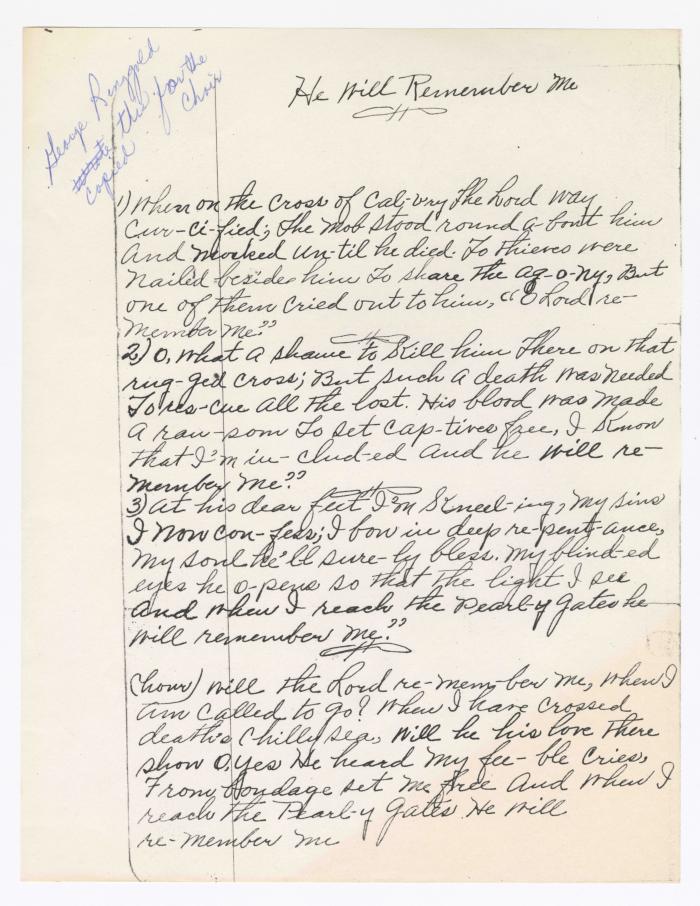 George Ringgold
wrote this for the
copied Choir
He Will Remember Me
1) When on the cross of Cal-vry The Lord way
Cur-ci-fied; The Mob stood round a-bout him
And Mocked Un-til he died. To thieves were
Nailed besides him To share the ag-o-ny, But
one of them Cried out to him, "O Lord re-
member Me."
2) O, What a shame to Kill him There on that
rug-ged cross; But such a death was needed
To res-cue all the lost. His blood was made
A ran-som To set cap-tives free, I Know
that I'm in-clud-ed And he will re-
member Me."
3) At his dear feet I'm Kneel-ing, My sins
I Now con-fess; I bow in deep re-pent-ance,
My soul he'll sure-ly bless. My blind-ed
eyes he o-pens so that the light I see
And when I reach the Pearl-y Gates he
will remember Me."
(hour) will the Lord re-mem-ber me, when I
am called to go? When I have crossed
death's Chilly sea, Will he his love There
show O, yes He heard My fee-ble Cries,
From bondage set Me free And When I
reach the Pearl-y Gates He Will
re-member Me